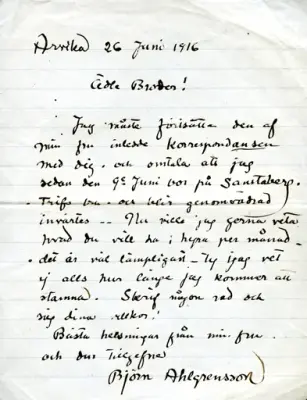 Arvika 26 Juni 1916
Ädle Broder!
Jag måste fortsätta den af
min fru inledde korrespondansen
med dig - och omtala att jag
sedan den 9e Juni bor på Sanitabergs
och blir genomvädrad
invärtes -- Nu ville jag gerna veta
hvad du vill ha i hyra per månad
- det är väl lämpligast - Ty jag vet
ej alls hur länge jag kommer att
stanna. Skrif någon rad och
säg dina villkor!
Bästa helsningar från min fru
och din Tillgifne
Björn Ahlgrensson